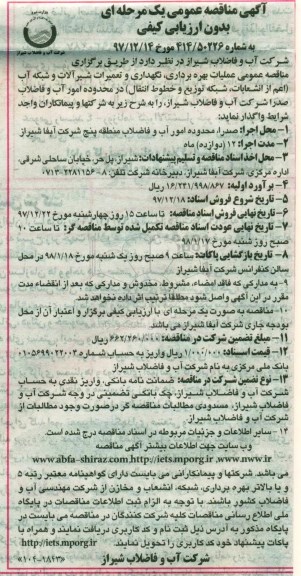 آگهی مناقصه عمومی یک مرحله ای
بدون ارزیابی کیفی
به شماره ۴۱۴/۵۰۲۲۶ مورخ ۹۷/۱۲/۱۴
شرکت آب و فاضلاب شیراز
شرکت آب و فاضلاب شیراز در نظر دارد از طریق برگزاری
مناقصه عمومی عملیات بهره برداری، نگهداری و تعمیرات شیرآلات و شبکه آب
(اعم از انشعابات، شبکه توزیع و خطوط انتقال) در محدوده امور آب و فاضلاب
صدرا شرکت آب و فاضلاب شیراز، را به شرح زیر به شرکتها و پیمانکاران واجد
شرایط واگذار نماید:
۱- محل اجرا: صدرا، محدوده امور آب و فاضلاب منطقه پنج شرکت آبفا شیراز
۲- مدت اجرا: ۱۲ (دوازده) ماه
۳- محل اخذ اسناد مناقصه و تسلیم پیشنهادات: شیراز، پل حر، خیابان ساحلی شرقی،
اداره مرکزی شرکت آبفا شیراز، دبیرخانه شرکت تلفن: ۸-۰۷۱۳۲۲۸۱۱۵۶
۴- برآورد اولیه: ۱۶/۲۳۱/۹۹۸/۸۶۷ ریال
۵- تاریخ شروع فروش اسناد: ۹۷/۱۲/۱۸
۶- تاریخ نهایی فروش اسناد مناقصه: تا ساعت ۱۵ روز چهارشنبه مورخ ۹۷/۱۲/۲۲
۷- تاریخ نهایی عودت اسناد مناقصه تکمیل شده توسط مناقصه گر: تا ساعت ۱۰
صبح روز شنبه مورخ ۹۸/۱/۱۷
۸- تاریخ بازگشایی پاکات: ساعت ۹ صبح روز یک شنبه مورخ ۹۸/۱/۱۸ در محل
سالن کنفرانس شرکت آبفا شیراز
۹- به مدارکی که فاقد امضاء، مشروط، مخدوش و مدارکی که بعد از انقضاء مدت
مقرر در این آگهی واصل شود مطلقا ترتیب اثر داده نخواهد شد.
۱۰- مناقصه به صورت یک مرحله ای با ارزیابی کیفی برگزار و اعتبار آن از محل
بودجه جاری شرکت آبفا شیراز می باشد.
۱۱- مبلغ تضمین شرکت در مناقصه: ریال
۱۲- قیمت اسناد: ۱/۰۰۰/۰۰۰ ریال واریز به حساب شماره ۰۱۰۵۶۹۹۰۲۲۰۰۳
بانک ملی مرکزی به نام شرکت آب و فاضلاب شیراز
۱۳- نوع تضمین شرکت در مناقصه: ضمانت نامه بانکی، واریز نقدی به حساب
شرکت آب و فاضلاب شیراز، چک بانکی تضمینی در وجه شرکت آب و
فاضلاب شیراز، مسدودی مطالبات مناقصه گر در صورت وجود مطالبات از
شرکت آب و فاضلاب شیراز.
۱۴- سایر اطلاعات و جزئیات مربوطه در اسناد مناقصه درج شده است.
وب سایت جهت اطلاعات بیشتر آگهی مناقصه
www.abfa-shiraz.com.http//iets.mporg.ir ,www.nww.ir
می باشد. شرکتها و پیمانکارانی می بایست دارای گواهینامه معتبر رتبه ۵
و یا بالاتر بهره برداری، شبکه، انشعاب و مخازن از شرکت مهندسی آب و
فاضلاب کشور باشند. با توجه به الزام ثبت اطلاعات مناقصات در پایگاه
ملی اطلاع رسانی مناقصات کلیه شرکت کنندگان در مناقصه می بایست در
پایگاه مذکور به آدرس ذیل ثبت نام و کد کاربری دریافت نمایند و همراه با
پاکات پیشنهاد خود کد کاربری را تحویل نمایند. http://iets.mporg.ir
شرکت آب و فاضلاب شیراز «۱۰۴-۱۸۴۳»